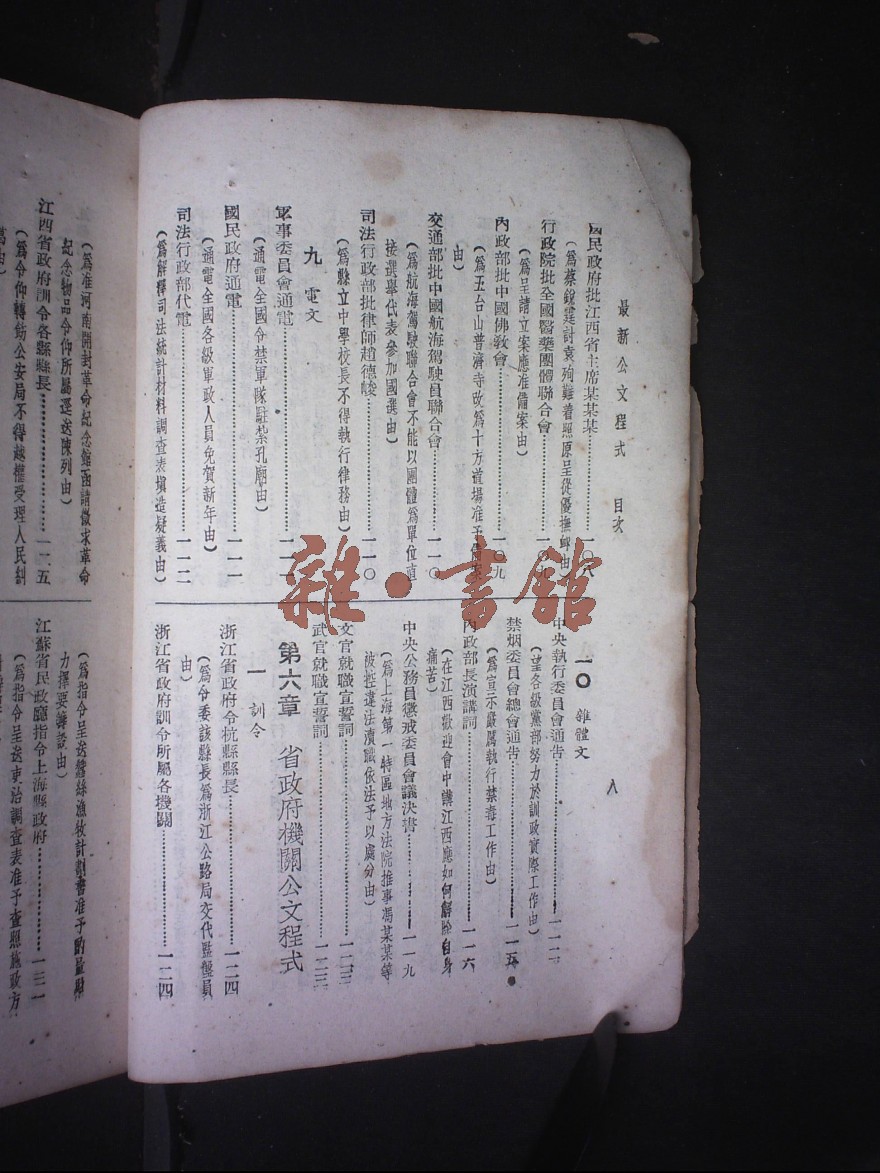 最新公文程式　目次
八
國民政府批江西省主席某某某……一〇八
（爲蔡銳霆討袁殉難着照原呈從優撫卹由）
行政院批全國醫藥團體聯合會……一〇九
（爲呈請立案應准備案由）
內政部批中國佛教會……一〇九
（爲五台山普濟寺改爲十方道場准予備案
由）
交通部批中國航海駕駛員聯合會……一一〇
（爲航海駕駛聯合會不能以團體爲單位直
接選舉代表參加國選由）
司法行政部批律師趙德峻……一一〇
（爲縣立中學校長不得執行律務由）
九　電文
軍事委員會通電……一一
（通電全國令禁軍隊駐紮孔廟由）
國民政府通電……一一一
（通電全國各級軍政人員免賀新年由）
司法行政部代電……一一二
（爲解釋司法統計材料調查表填造疑義由）
一〇　雜體文
中央執行委員會通告……一一
（望各級黨部努力於訓政實際工作由）
禁烟委員會總會通告……一一五
（爲宣示嚴厲執行禁毒工作由）
內政部長演講詞……一一六
（在江西歡迎會中講江西應如何解除自身
痛苦）
中央公務員懲戒委員會議決書……一一九
（爲上海第一特區地方法院推事馮某某等
被控違法瀆職依法予以處分由）
文官就職宣誓詞……一二三
武官就職宣誓詞……一二三
第六章　省政府機關公文程式
一　訓令
浙江省政府令杭縣縣長……一二四
（爲令委該縣長爲浙江公路局交代監盤員
由）
浙江省政府訓令所屬各機關……一二四
（爲准河南開封革命紀念館函請徵求革命
紀念物品令仰所屬選送陳列由）
江西省政府訓令各縣縣長……一二五
（爲令仰轉飭公安局不得越權受理人民糾
葛由）
（爲指令呈送蠶絲漁牧計劃書准予酌量
力擇要辦設由）
江蘇省民政廳指令上海縣政府……一三一
（爲指令呈送吏治調查表准予查照施政方